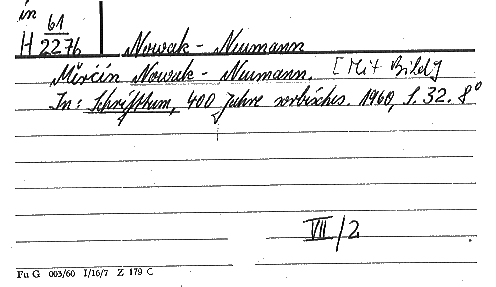 in
H 61/2276 Nowak - Neumann
Měrćin Nowak - Neumann. [Mit Bild]
In: Schrifttum, 400 Jahre sorbisches. 1960, S. 32. 8°
VII/2
Fu G 003/60 I/16/7 Z 179 C